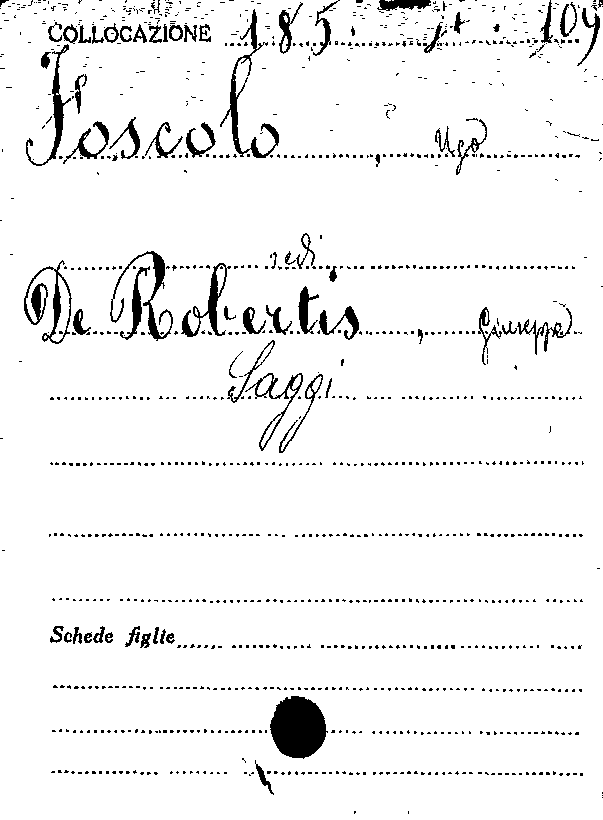 COLLOCAZIONE 185. 104
Foscolo, Ugo
vedi
De Robertis, Giuseppe
Saggi
Schede figlie